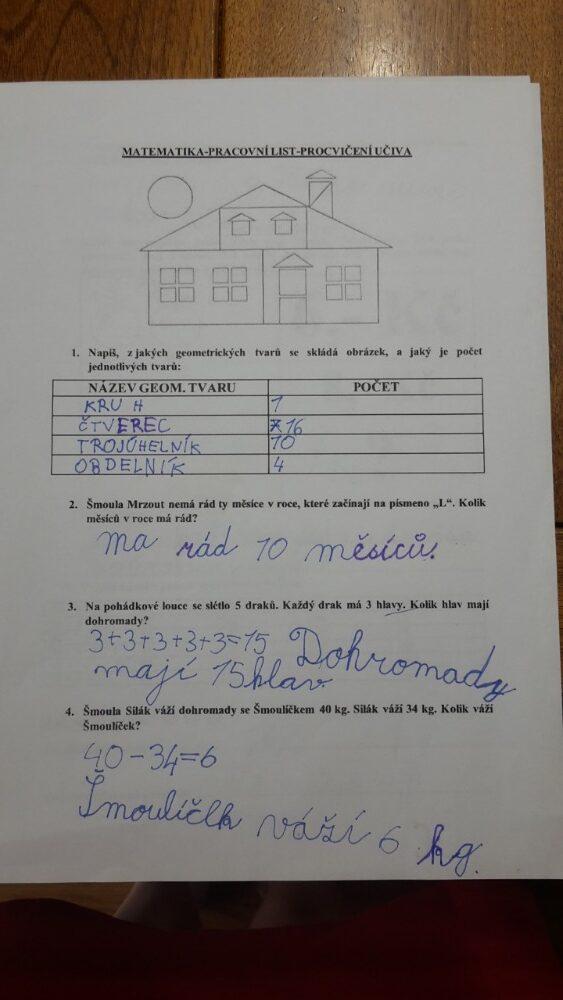 MATEMATIKA-PRACOVNÍ LIST-PROCVIČENÍ UČIVA
1. Napiš, z jakých geometrických tvarů se skládá obrázek, a jaký je počet
jednotlivých tvarů:
NÁZEV GEOM. TVARU POČET
KRUH 1
ČTVEREC 16
TROJÚHELNÍK 10
OBDELNÍK 4
2. Šmoula Mrzout nemá rád ty měsíce v roce, které začínají na písmeno „L“. Kolik
měsíců v roce má rád?
ma rád 10 měsíců.
3. Na pohádkové louce se slétlo 5 draků. Každý drak má 3 hlavy. Kolik hlav mají
dohromady?
3+3+3+3+3=15 Dohromady
mají 15 hlav.
4. Šmoula Silák váží dohromady se Šmoulíčkem 40 kg. Silák váží 34 kg. Kolik váží
Šmoulíček?
40-34=6
Šmoulíček váží 6 kg.